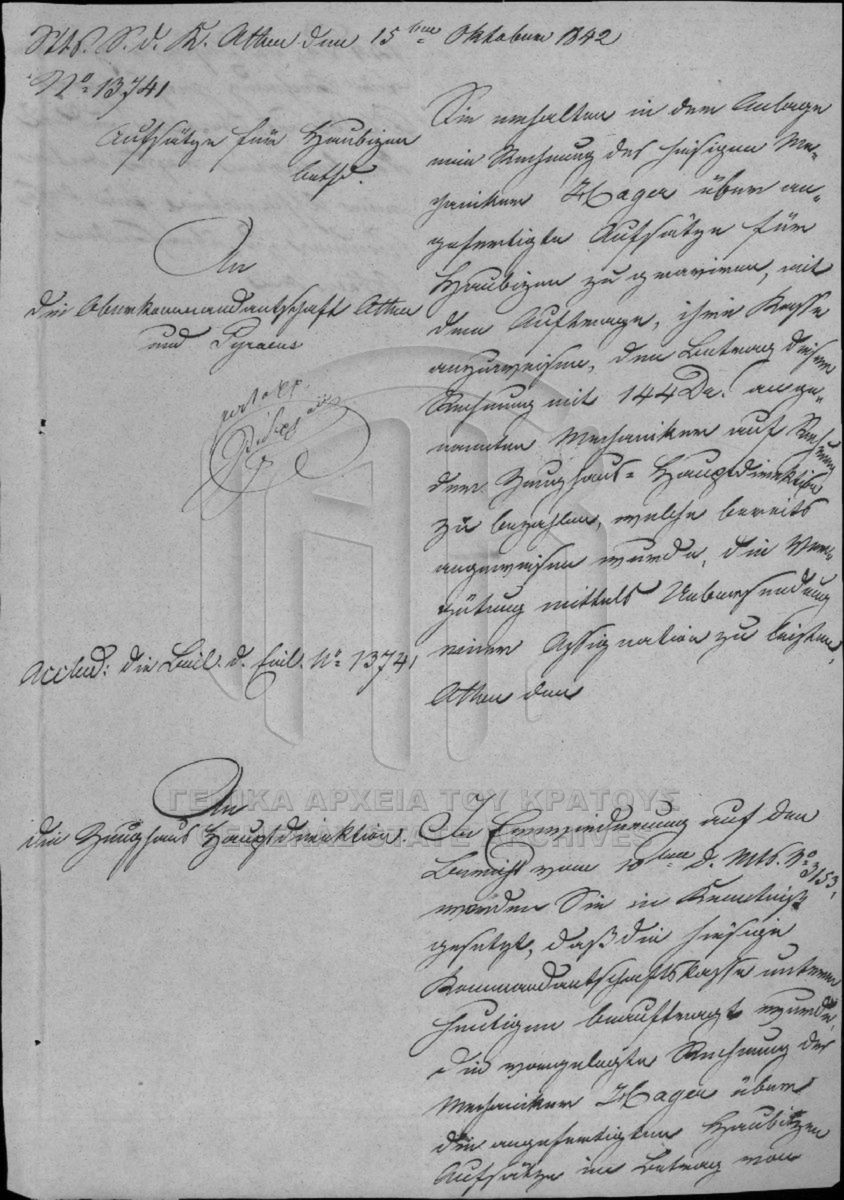 Sts. S. d. K. Athen den 15ten Oktober 1842
No 13741
Aufsätze für Haubizen
betr.
An
die Oberkommandantschaft Athen
und Pyraeus
Acclud: die Beil. d. Einl. No 13741
Sie erhalten in der Anlage
eine Rechnung des hiesigen Me-
chaniker Hager über an-
gefertigte Aufsätze für
Haubizen zu graviren, mit
dem Auftrage, ihre Kasse
anzuweisen, den Betrag dieser
Rechnung mit 144 Dr. an ge-
nannten Mechaniker auf Rechnung
der Zeughaus-Hauptdirektion
zu bezahlen, welche bereits
angewiesen wurde, die Ver-
gütung mittels Uebersendung
einer Assignation zu leisten,
Athen den
An
die Zeughaus Hauptdirektion
In Erwiederung auf den
Bericht vom 10ten d. Mts. No 3153,
werden Sie in Kenntniß
gesetzt, daß die hiesige
Kommandantschaftskasse unterm
Heutigen beauftragt wurde,
die vorgelegte Rechnung des
Mechaniker Hager über
die angefertigten Haubitzen
Aufsätze im Betrag von
ΓΕΝΙΚΑ ΑΡΧΕΙΑ ΤΟΥ ΚΡΑΤΟΥΣ
GENERAL STATE ARCHIVES